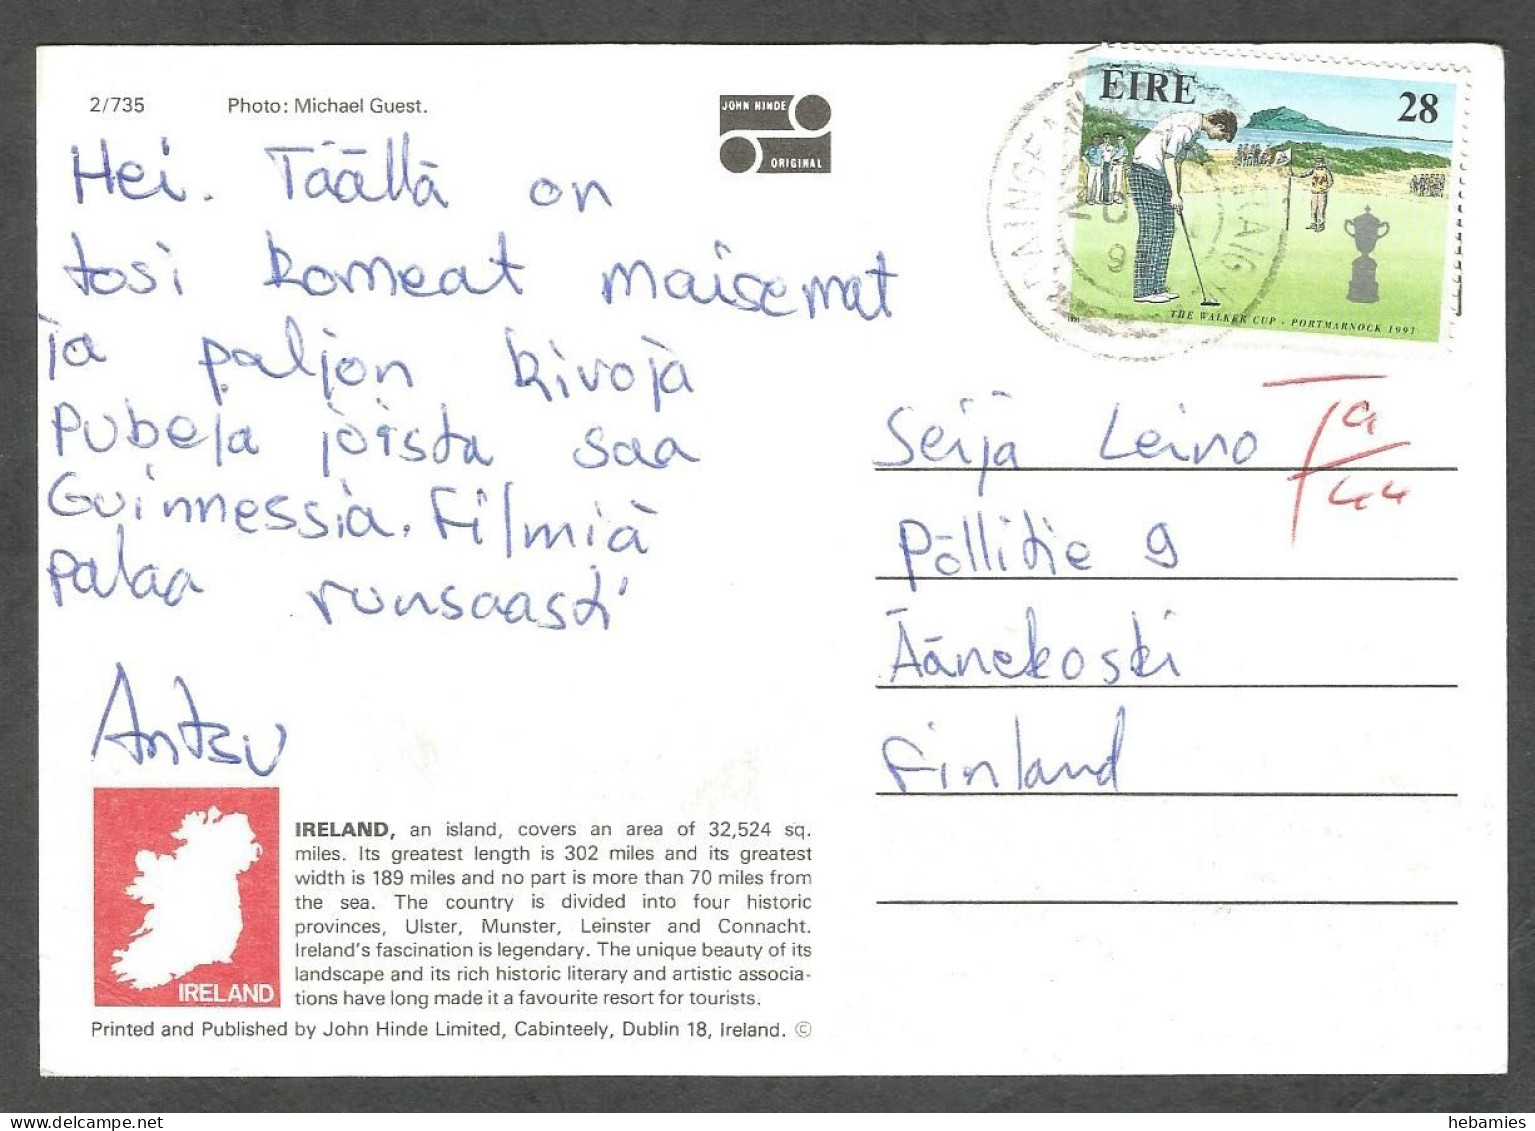 2/735 Photo: Michael Guest.
JOHN HINDE
ORIGINAL
Hei. Täällä on
tosi komeat maisemat
ja paljon kivoja
Pubeja joista saa
Guinnessia. Filmiä
palaa runsaasti
Antsu
ÉIRE 28
THE WALKER CUP · PORTMARNOCK 1991
Seija Leino
Pöllitie 9
Äänekoski
Finland
T 9/44
IRELAND
IRELAND, an island, covers an area of 32,524 sq.
miles. Its greatest length is 302 miles and its greatest
width is 189 miles and no part is more than 70 miles from
the sea. The country is divided into four historic
provinces, Ulster, Munster, Leinster and Connacht.
Ireland's fascination is legendary. The unique beauty of its
landscape and its rich historic literary and artistic associa-
tions have long made it a favourite resort for tourists.
Printed and Published by John Hinde Limited, Cabinteely, Dublin 18, Ireland. ©
hebamies